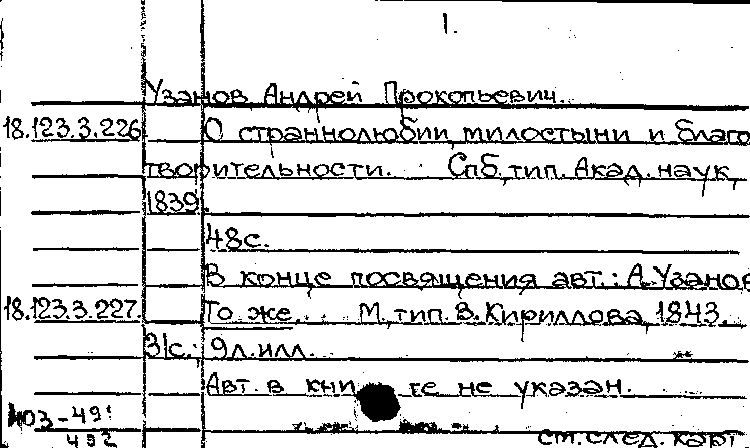 1.
Узанов Андрей Прокопьевич.
18.123.3.226 О страннолюбии, милостыни и благо
творительности. Спб, тип. Акад. наук,
1839.
48с.
В конце посвящения авт.: А.Узанов
18.123.3.227. То же. М., тип. В. Кириллова, 1843.
31с.; 9л. илл.
Авт. в кни ге не указан.
403-491
492 см. след. карт